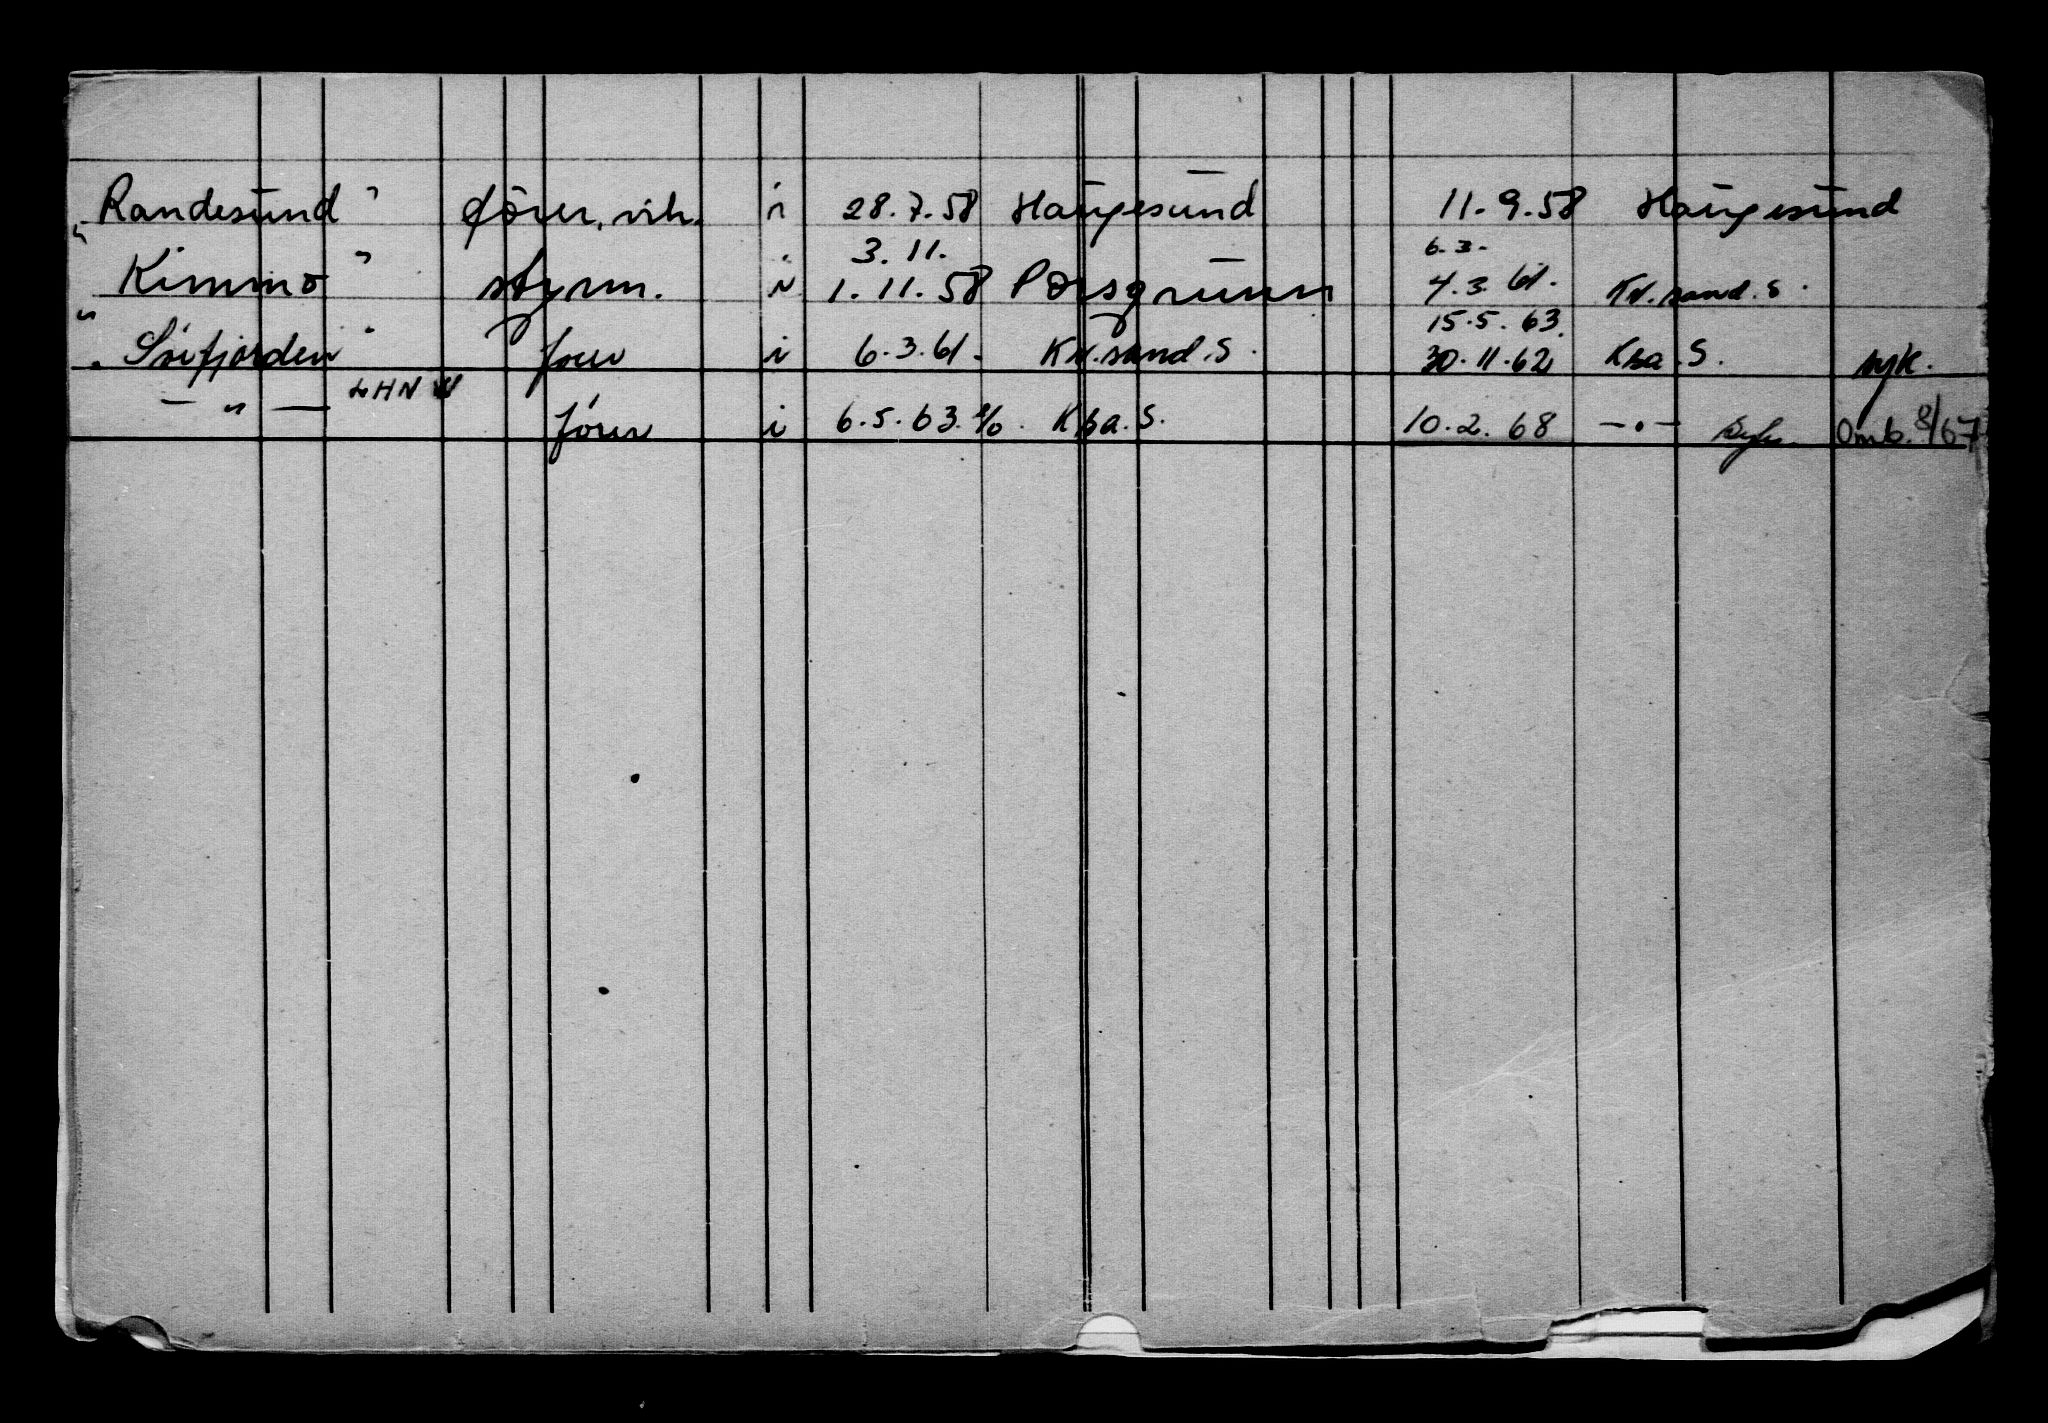 "Randesund" fører, vik. i 28.7.58 Haugesund 11.9.58 Haugesund
3.11. 6.3-
"Kimmo" styrm. i 1.11.58 Porsgrunn 4.3.61. Kr.sand.S.
15.5.63.
"Sørfjorden" fører i 6.3.61. Kr.sand.S. 30.11.62 Ksa.S. syk.
LHNW
— " — fører i 6.5.63. Ksa.S. 10.2.68 —.— Omb. 8/67